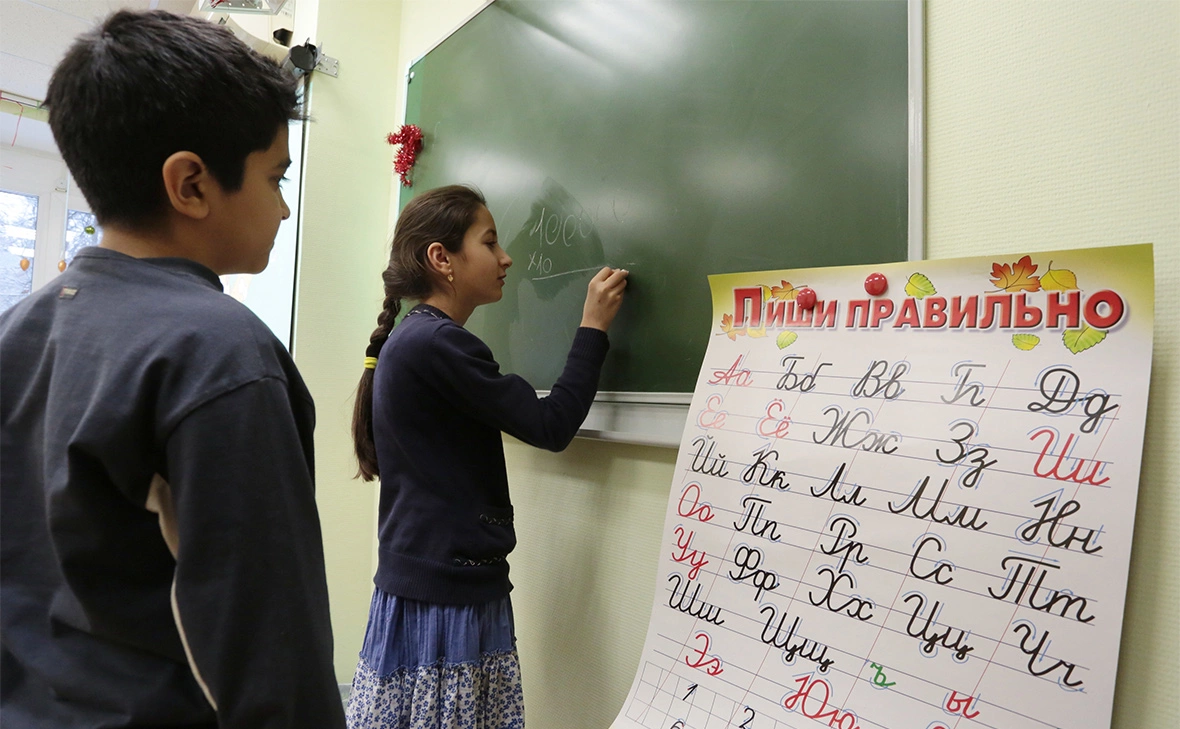 1000
×10
Пиши правильно
Аа Бб Вв Гг Дд
Ее Ёё Жж Зз Ии
Йй Кк Лл Мм Нн
Оо Пп Рр Сс Тт
Уу Фф Хх Цц Чч
Шш Щщ ъ ы
Ээ Юю
1 2